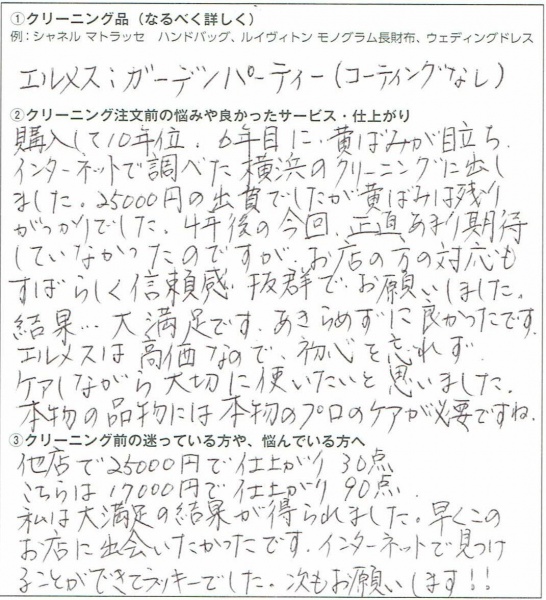 ①クリーニング品（なるべく詳しく）
例：シャネル マトラッセ　ハンドバッグ、ルイヴィトン モノグラム長財布、ウェディングドレス
エルメス；ガーデンパーティー（コーティングなし）
②クリーニング注文前の悩みや良かったサービス・仕上がり
購入して10年位．6年目に、黄ばみが目立ち、
インターネットで調べた横浜のクリーニングに出し
ました。25000円の出費でしたが黄ばみは残り
がっかりでした。4年後の今回、正直あまり期待
していなかったのですが、お店の方の対応も
すばらしく信頼感、抜群で、お願いしました。
結果…大満足です。あきらめずに良かったです。
エルメスは高価なので、初心を忘れず、
ケアしながら大切に使いたいと思いました。
本物の品物には本物のプロのケアが必要ですね。
③クリーニング前の迷っている方や、悩んでいる方へ
他店で25000円で仕上がり 30点
こちらは17000円で仕上がり 90点．
私は大満足の結果が得られました。早くこの
お店に出会いたかったです。インターネットで見つけ
ることができてラッキーでした。次もお願いします!!